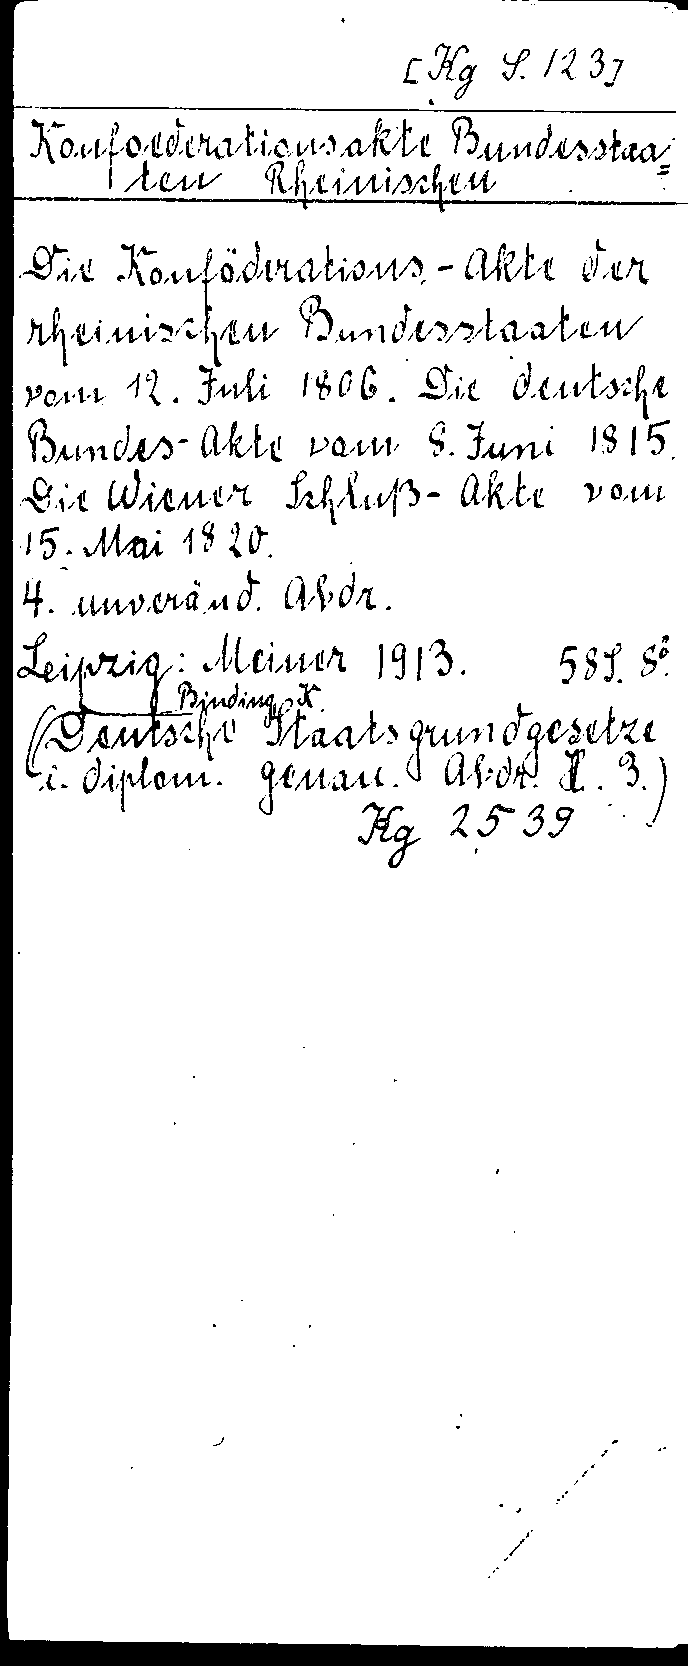 [Kg S. 123]
Konfoederationsakte Bundesstaa=
ten Rheinischen
Die Konföderations-Akte der
rheinischen Bundesstaaten
vom 12. Juli 1806. Die deutsche
Bundes-Akte vom 8. Juni 1815.
Die Wiener Schluß-Akte vom
15. Mai 1820.
4. unveränd. Abdr.
Leipzig: Meiner 1913. 58 S. 8°.
Binding, K.
(Deutsche Staatsgrundgesetze
i. diplom. genau. Abdr. 3.)
Kg 2539